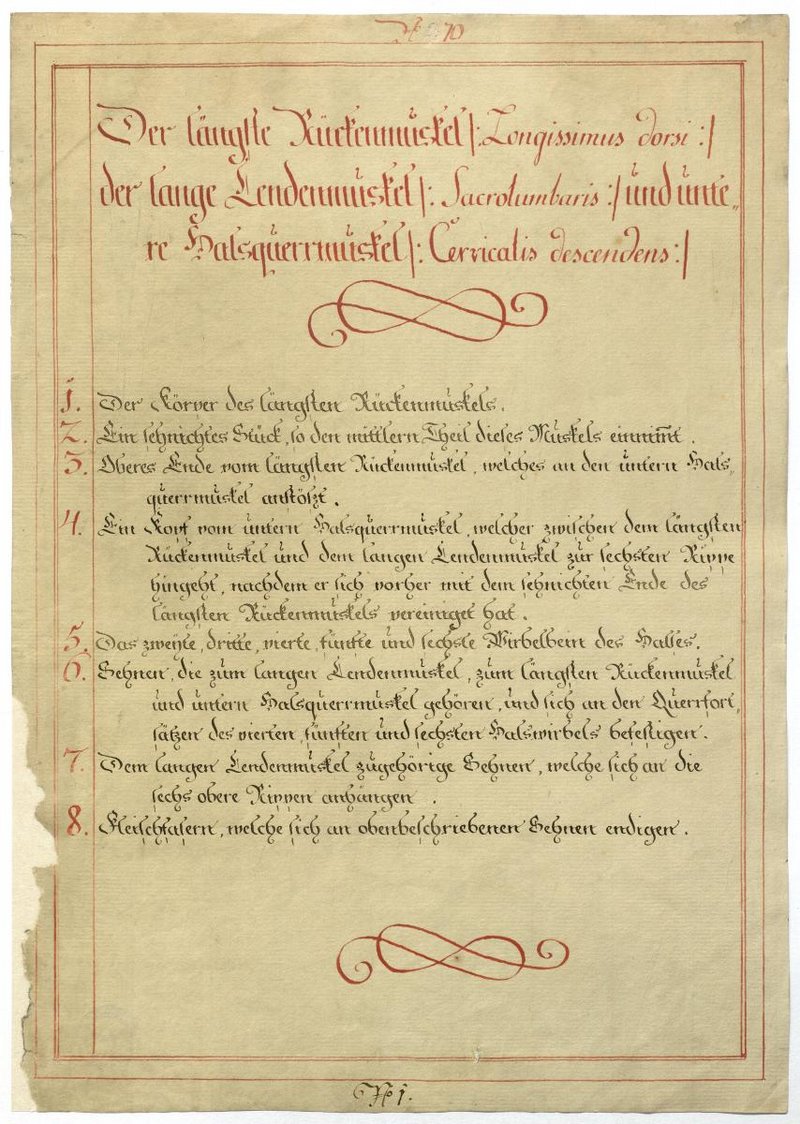 N 70
Der längste Rückenmuskel /: Longissimus dorsi :/
der lange Lendenmuskel /: Sacrolumbaris :/ und unte„
re Halsquerrmuskel /: Cervicalis descendens :/
1. Der Körper des längsten Rückenmuskels.
2. Ein sehnichtes Stück, so den mittlern Theil dieses Muskels einnim̅t.
3. Oberes Ende vom längsten Rückenmuskel, welches an den untern Hals„
querrmuskel anstößt.
4. Ein Kopf vom untern Halsquerrmuskel, welcher zwischen dem längsten
Rückenmuskel und dem langen Lendenmuskel zur sechsten Rippe
hingeht, nachdem er sich vorher mit dem sehnichten Ende des
längsten Rückenmuskels vereiniget hat.
5. Das zweyte, dritte, vierte, fünfte und sechste Wirbelbein des Halses.
6. Sehnen, die zum langen Lendenmuskel, zum längsten Rückenmuskel
und untern Halsquerrmuskel gehören, und sich an den Querrfort„
sätzen des vierten, fünften und sechsten Halswirbels befestigen.
7. Dem langen Lendenmuskel zugehörige Sehnen, welche sich an die
sechs obere Rippen anhängen.
8. Fleischfasern, welche sich an obenbeschriebenen Sehnen endigen.
N 1.